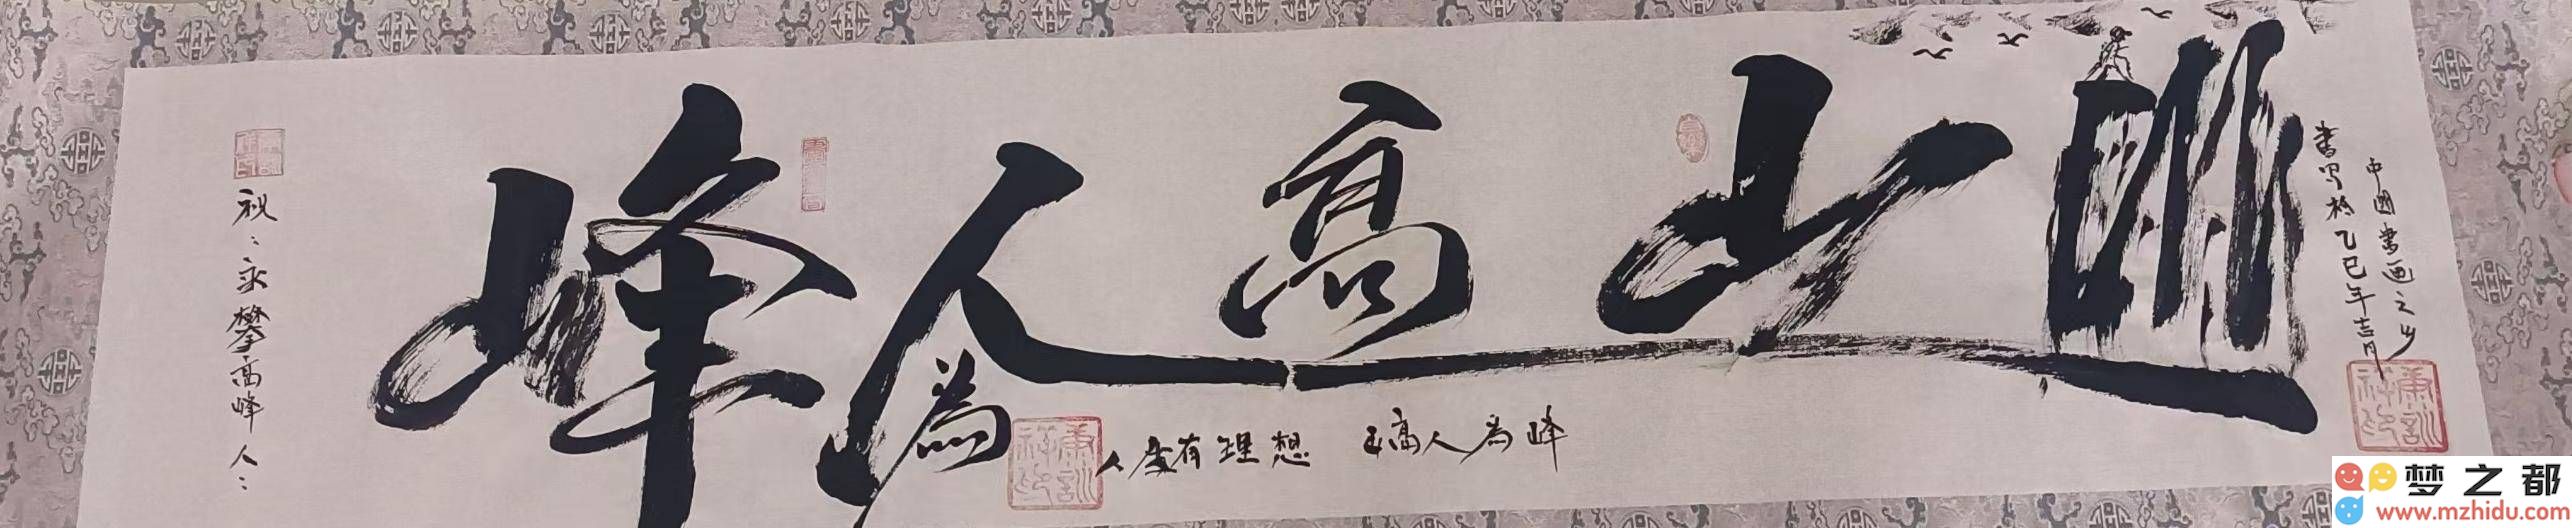 中國書畫之乡
書写於乙巳年吉月
山高人為峰
有理想 高人为峰
祝:永攀高峰人:
梦之都
www.mzhidu.com